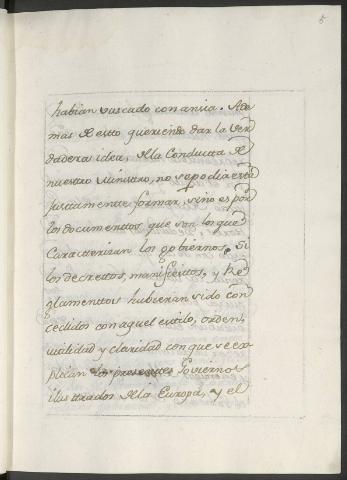 5
habian vuscado con ansia. Ade
mas de estto queriendo dar la ver
dadera idea, de la Conductta de
nuestro Ministro, no se podra estta
justtamentte formar, sino es por
los documenttos, que son los que
Caractterizan los gobiernos. Si
los decrettos, manifiestos, y Re
glamenttos hubieran sido con
cebidos con aquel estilo, orden,
utilidad y claridad con que se ex
plican los presentes Goviernos
ilusttrados de la Europa, y el